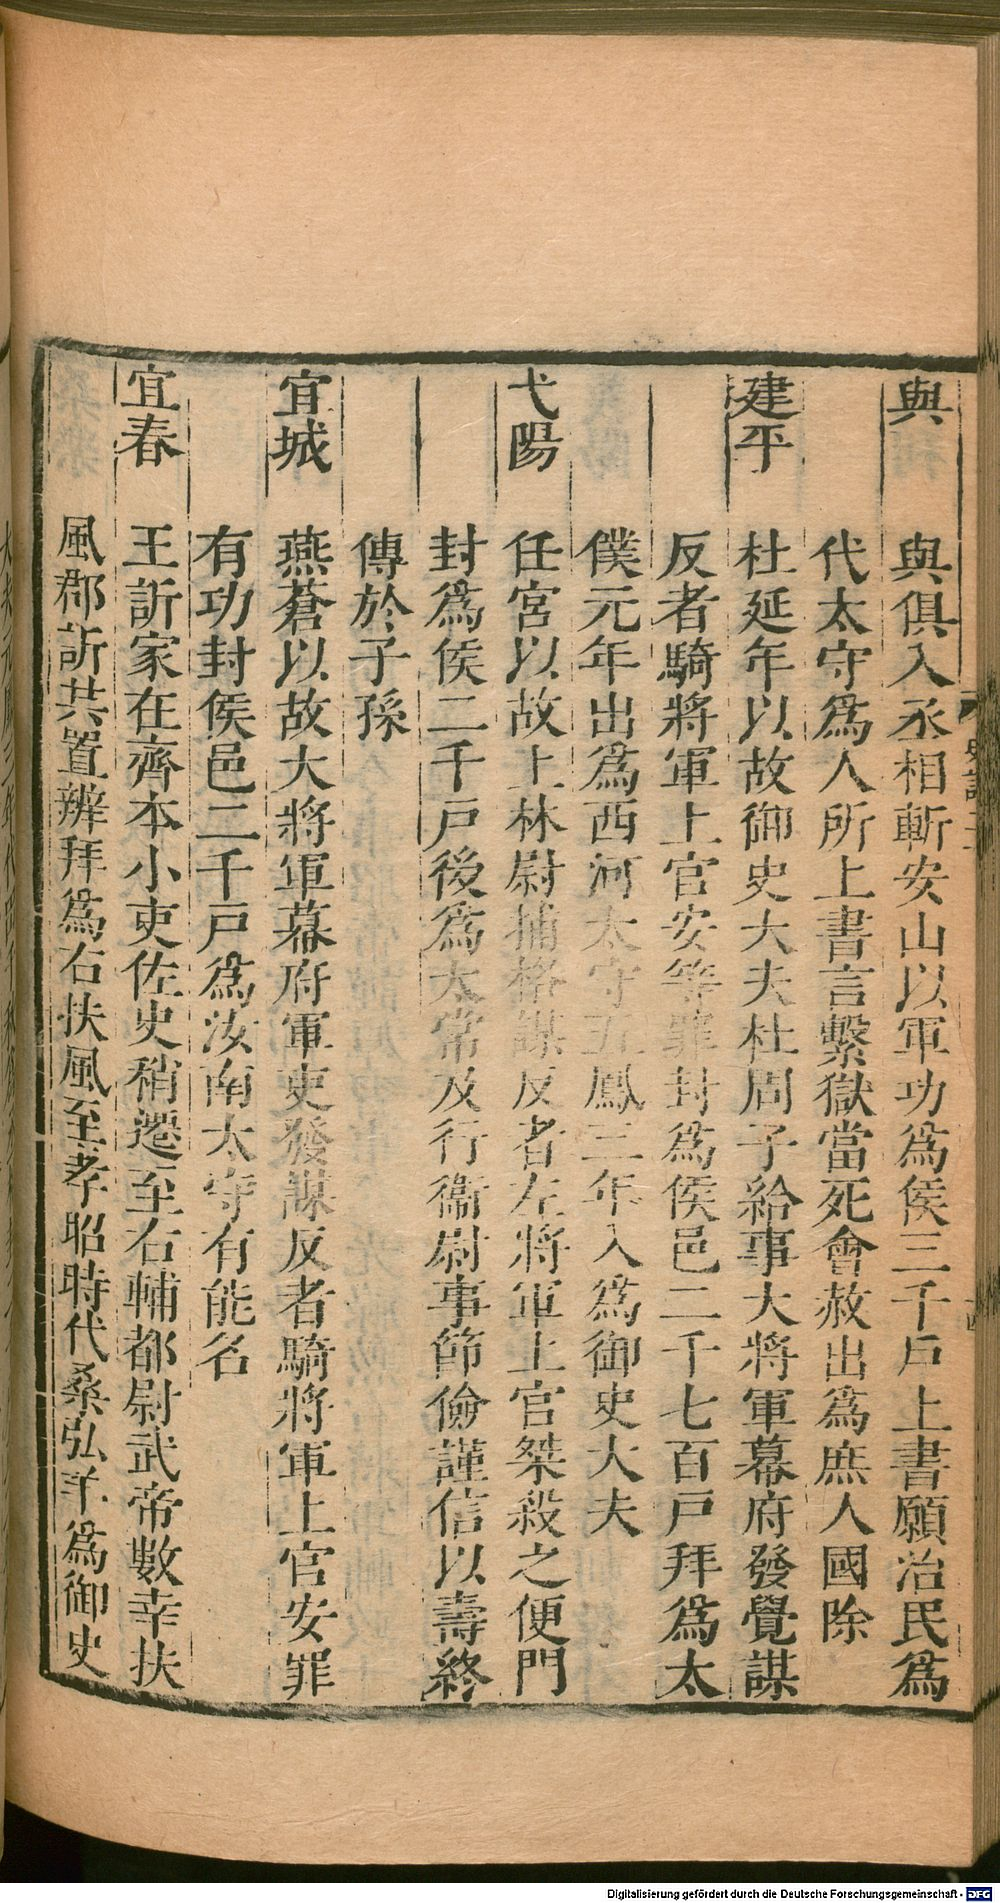 與　與俱入丞相斬安山以軍功爲侯三千戶上書願治民爲
代太守爲人所上書言繫獄當死會赦出爲庶人國除
建平　杜延年以故御史大夫杜周子給事大將軍幕府發覺謀
反者騎將軍上官安等罪封爲侯邑二千七百戶拜爲太
僕元年出爲西河太守五鳳三年入爲御史大夫
弋陽　任宮以故上林尉捕格謀反者左將軍上官桀殺之便門
封爲侯二千戶後爲太常及行衞尉事節儉謹信以壽終
傳於子孫
宜城　燕蒼以故大將軍幕府軍吏發謀反者騎將軍上官安罪
有功封侯邑二千戶爲汝南太守有能名
宜春　王訢家在齊本小吏佐史稍遷至右輔都尉武帝數幸扶
風郡訢共置辨拜爲右扶風至孝昭時代桑弘羊爲御史
Digitalisierung gefördert durch die Deutsche Forschungsgemeinschaft - DFG